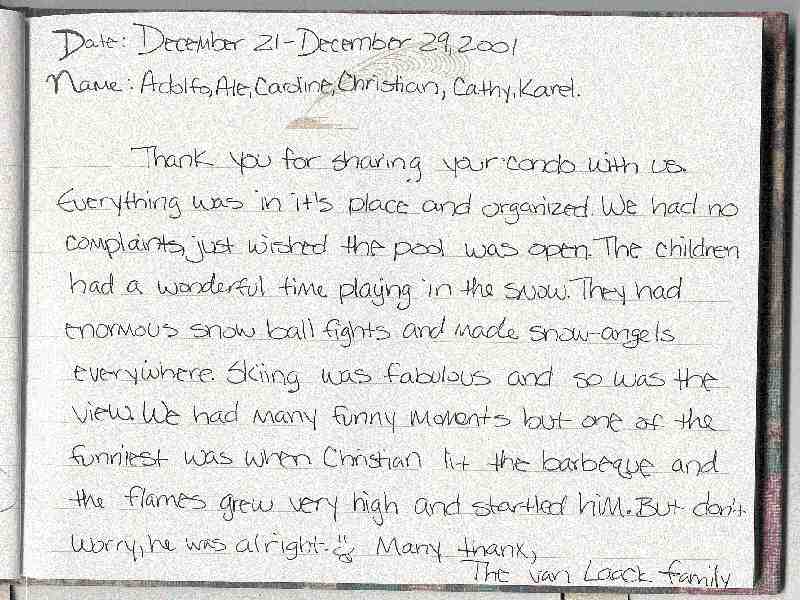 Date: December 21-December 29, 2001
Name: Adolfo, Ale, Caroline, Christian, Cathy, Karel.
Thank you for sharing your condo with us.
Everything was in it's place and organized. We had no
complaints, just wished the pool was open. The children
had a wonderful time playing in the snow. They had
enormous snow ball fights and made snow-angels
everywhere. Skiing was fabulous and so was the
view. We had many funny moments but one of the
funniest was when Christian lit the barbeque and
the flames grew very high and startled him. But don't
worry, he was alright. Many thanx,
The van Laack family